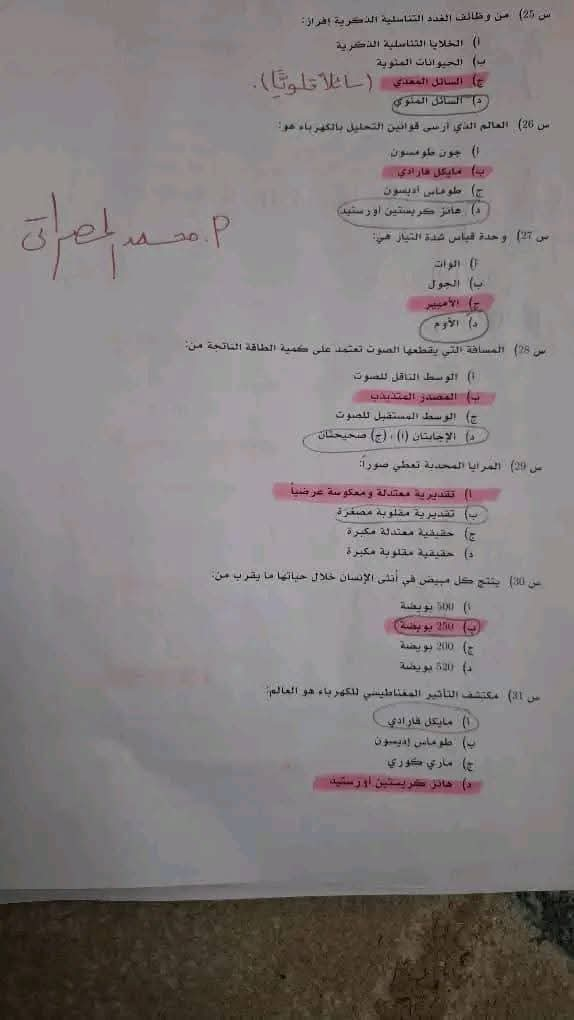 س 25) من وظائف الغدد التناسلية الذكرية إفراز:
أ) الخلايا التناسلية الذكرية
ب) الحيوانات المنوية
ج) السائل المعدي (سائلاً قلويًّا).
د) السائل المنوي
س 26) العالم الذي أرسى قوانين التحليل بالكهرباء هو:
أ) جون طومسون
ب) مايكل فارادي
ج) طوماس أديسون
د) هانز كريستين أورستيد
P. محمد المصراتي
س 27) وحدة قياس شدة التيار هي:
أ) الوات
ب) الجول
ج) الأمبير
د) الأوم
س 28) المسافة التي يقطعها الصوت تعتمد على كمية الطاقة الناتجة من:
أ) الوسط الناقل للصوت
ب) المصدر المتذبذب
ج) الوسط المستقبل للصوت
د) الإجابتان (أ) ، (ج) صحيحتان
س 29) المرايا المحدبة تعطي صوراً:
أ) تقديرية معتدلة ومعكوسة عرضياً
ب) تقديرية مقلوبة مصغرة
ج) حقيقية معتدلة مكبرة
د) حقيقية مقلوبة مكبرة
س 30) ينتج كل مبيض في أنثى الإنسان خلال حياتها ما يقرب من:
أ) 500 بويضة
ب) 250 بويضة
ج) 200 بويضة
د) 520 بويضة
س 31) مكتشف التأثير المغناطيسي للكهرباء هو العالم:
أ) مايكل فارادي
ب) طوماس إديسون
ج) ماري كوري
د) هانز كريستين أورستيد